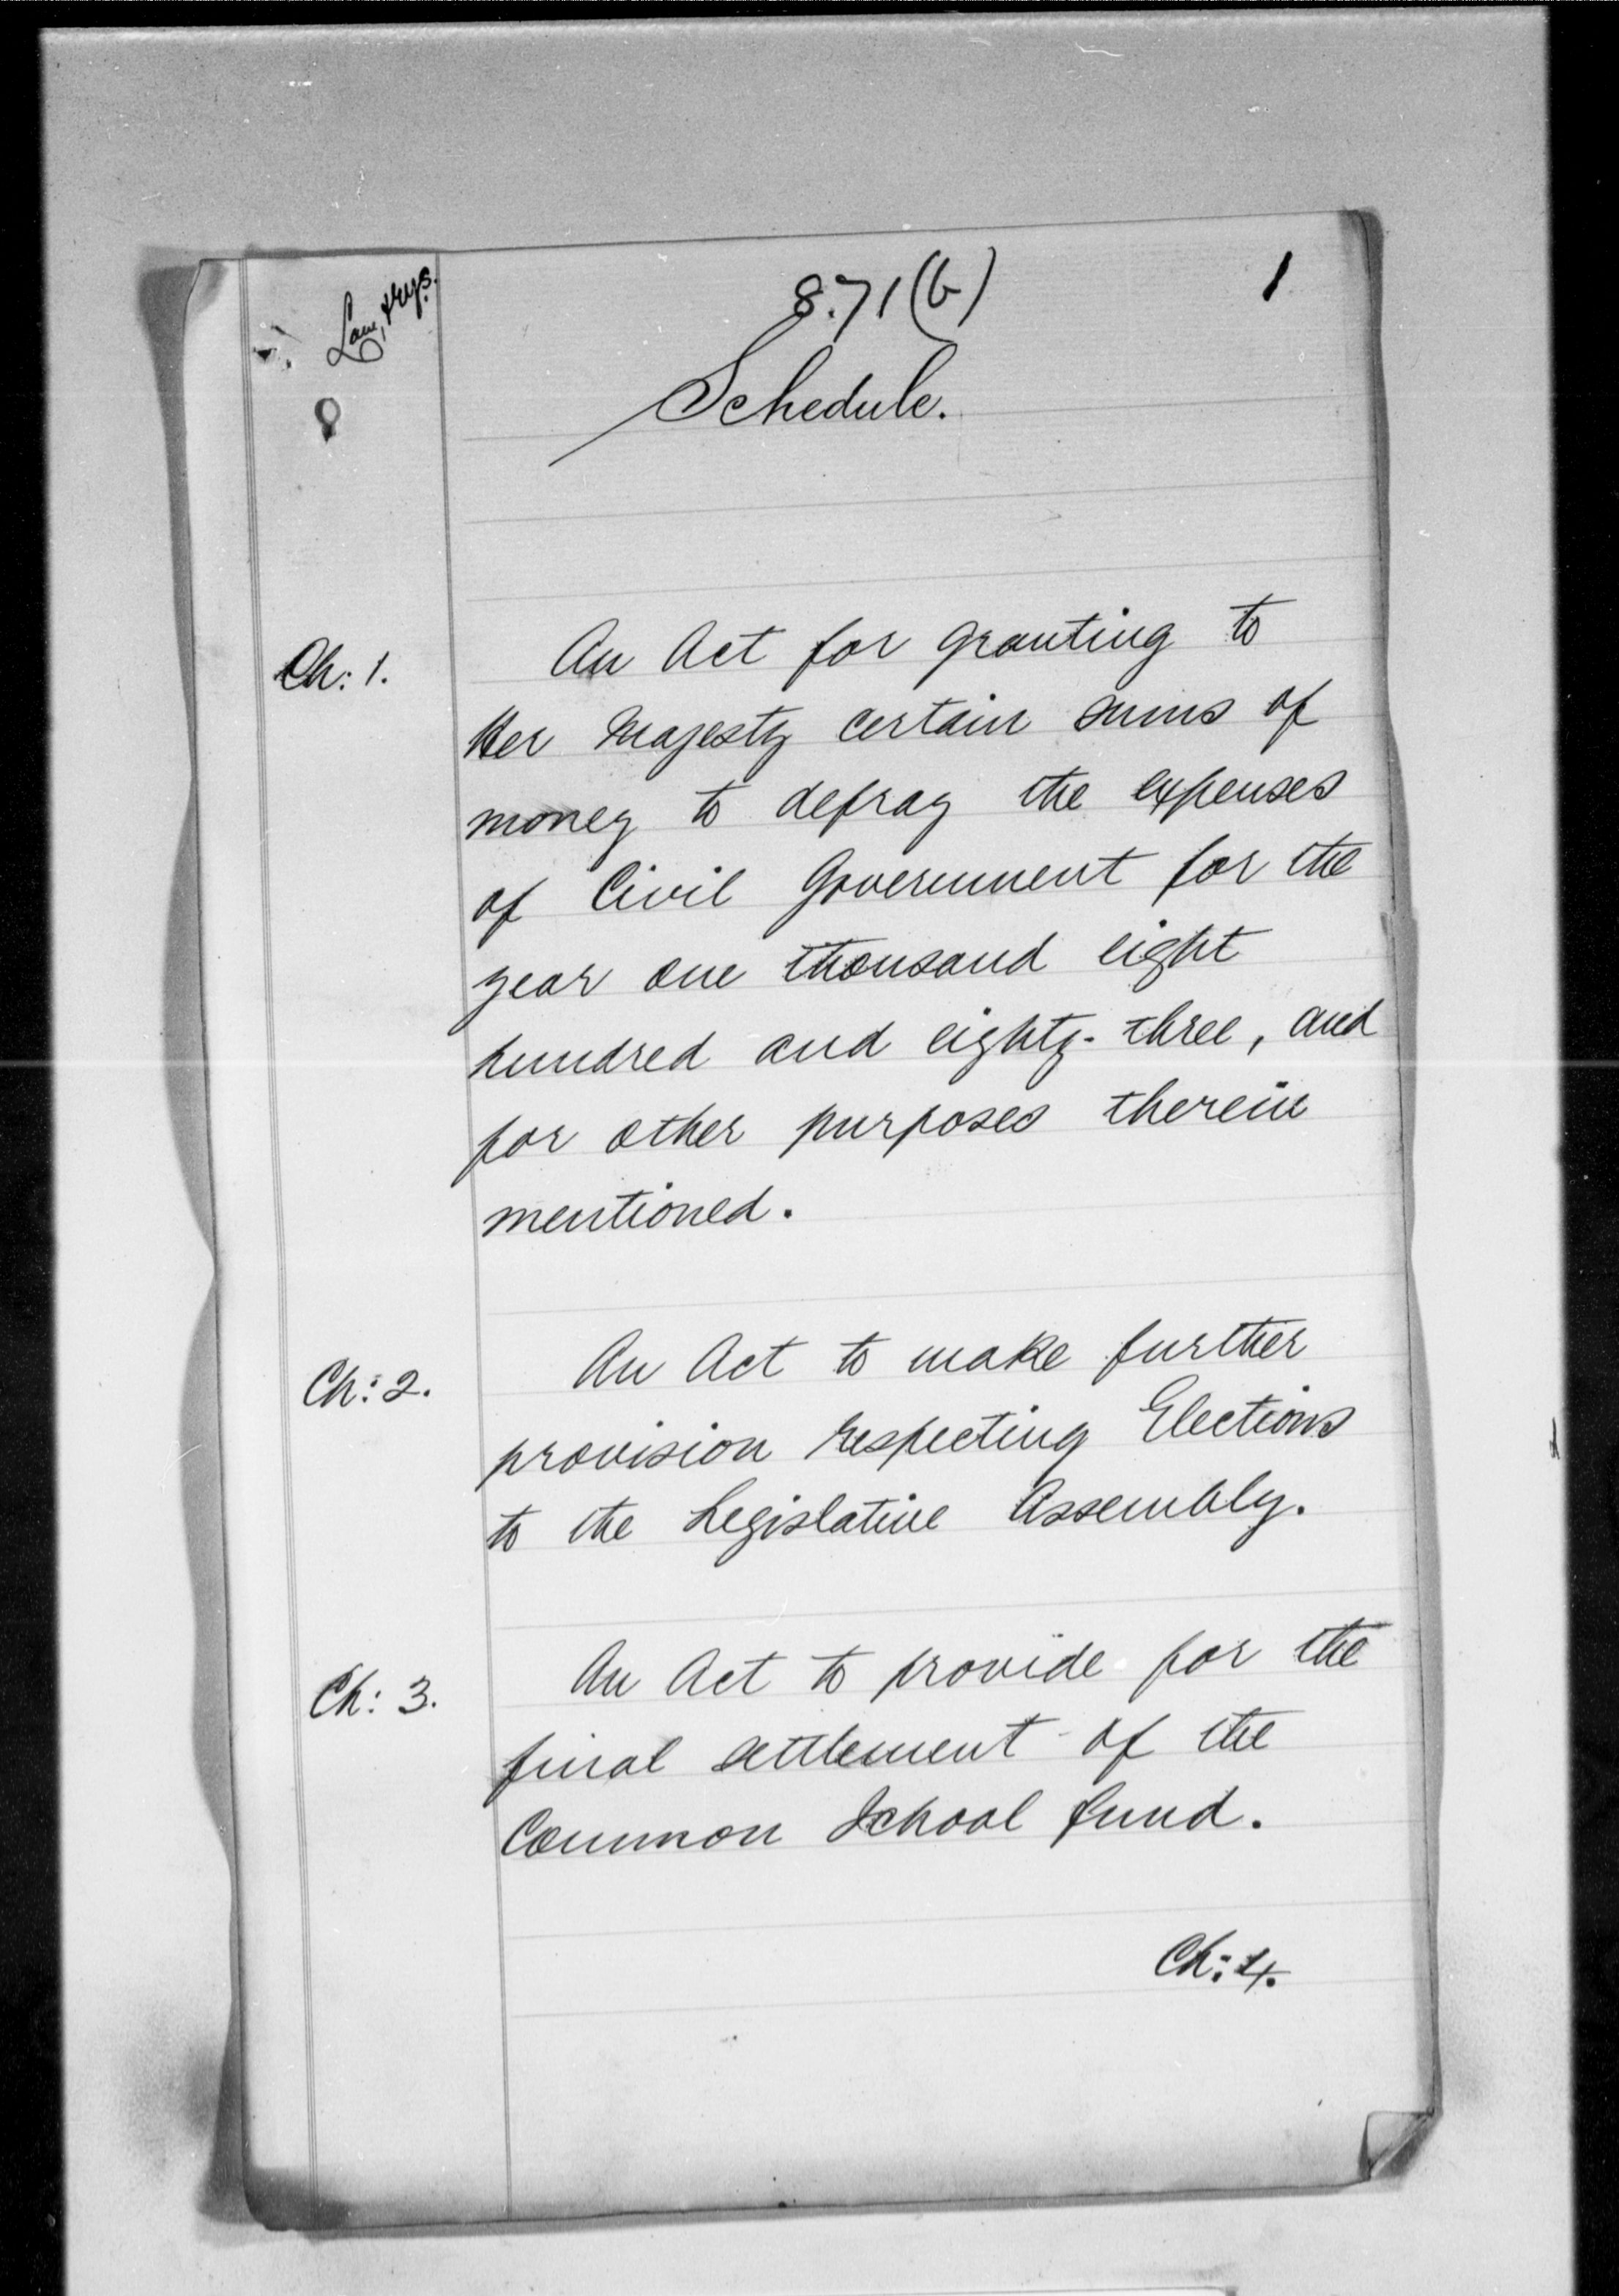 8.71(b)
1
Schedule.
Ch: 1.
An Act for granting to
Her Majesty certain sums of
money to defray the expenses
of Civil Government for the
year one thousand eight
hundred and eighty-three, and
for other purposes therein
mentioned.
Ch: 2.
An Act to make further
provision respecting Elections
to the Legislative Assembly.
Ch: 3.
An Act to provide for the
final settlement of the
Common School fund.
Ch: 4.